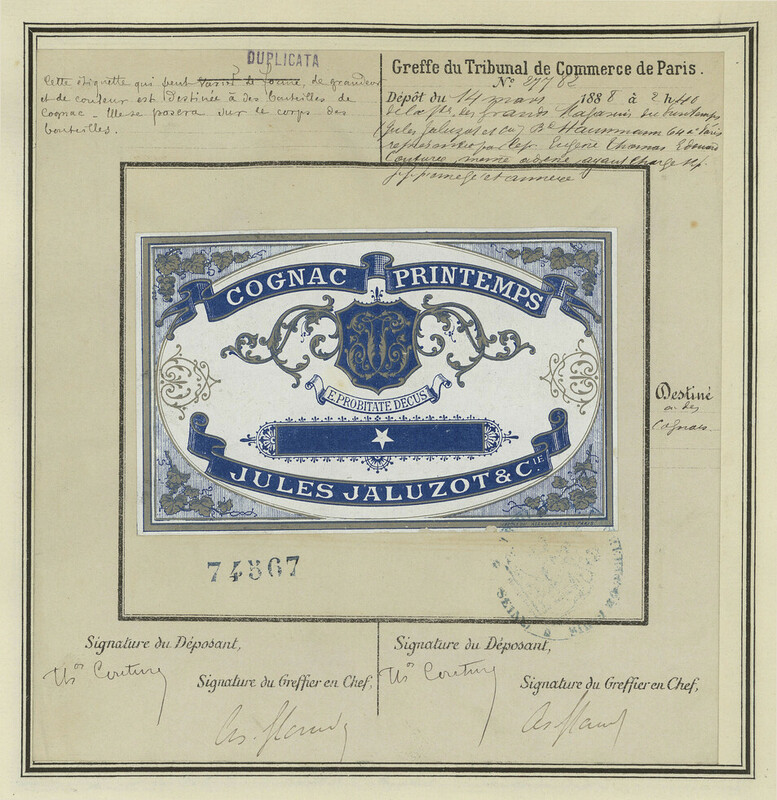 DUPLICATA
Cette étiquette qui peut varier de forme, de grandeur
et de couleur est destinée à des bouteilles de
Cognac - Elle se posera sur le corps des
bouteilles.
Greffe du Tribunal de Commerce de Paris.
N°
Dépôt du 14 mars 1888 à 2 h 40
des Grands Magasins du Printemps
(Jules Jaluzot et Cie) Bd Haussmann 64 à Paris
Eugène Thomas Edouard
Couture, même
COGNAC PRINTEMPS
E PROBITATE DECUS
JULES JALUZOT & CIE
Destiné
à des
Cognacs
74567
SEINE
Signature du Déposant,
Ths Couture
Signature du Greffier en Chef,
Signature du Déposant,
Ths Couture
Signature du Greffier en Chef,